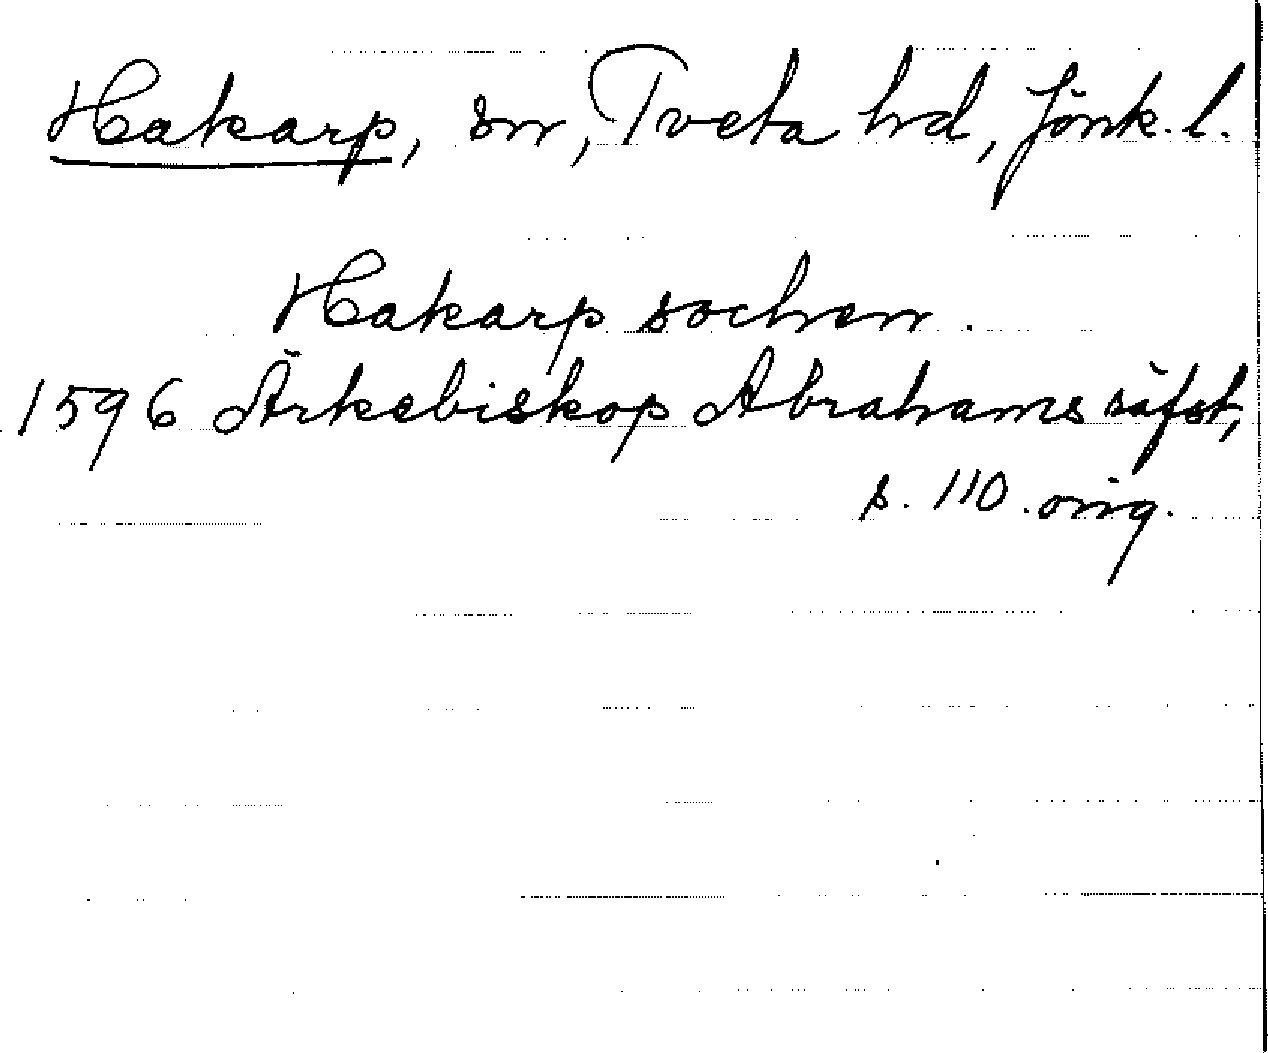 Hakarp, sn, Tveta hd, Jönk. l.
Hakarp sochen.
1596 Ärkebiskop Abrahams räfst,
s. 110. orig.